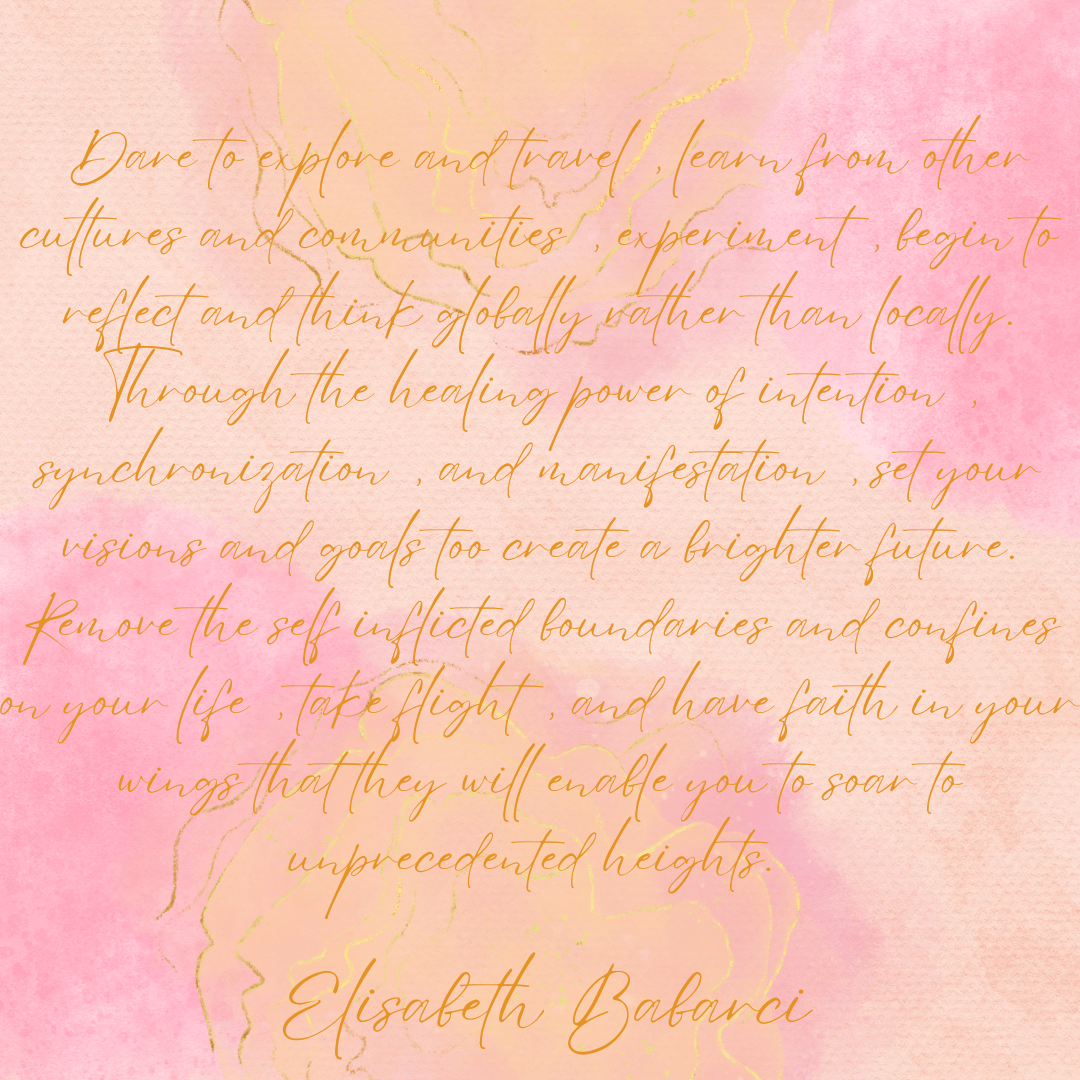 Dare to explore and travel , learn from other
cultures and communities , experiment , begin to
reflect and think globally rather than locally.
Through the healing power of intention ,
synchronization , and manifestation , set your
visions and goals too create a brighter future.
Remove the self inflicted boundaries and confines
on your life , take flight , and have faith in your
wings that they will enable you to soar to
unprecedented heights.
Elisabeth Babarci